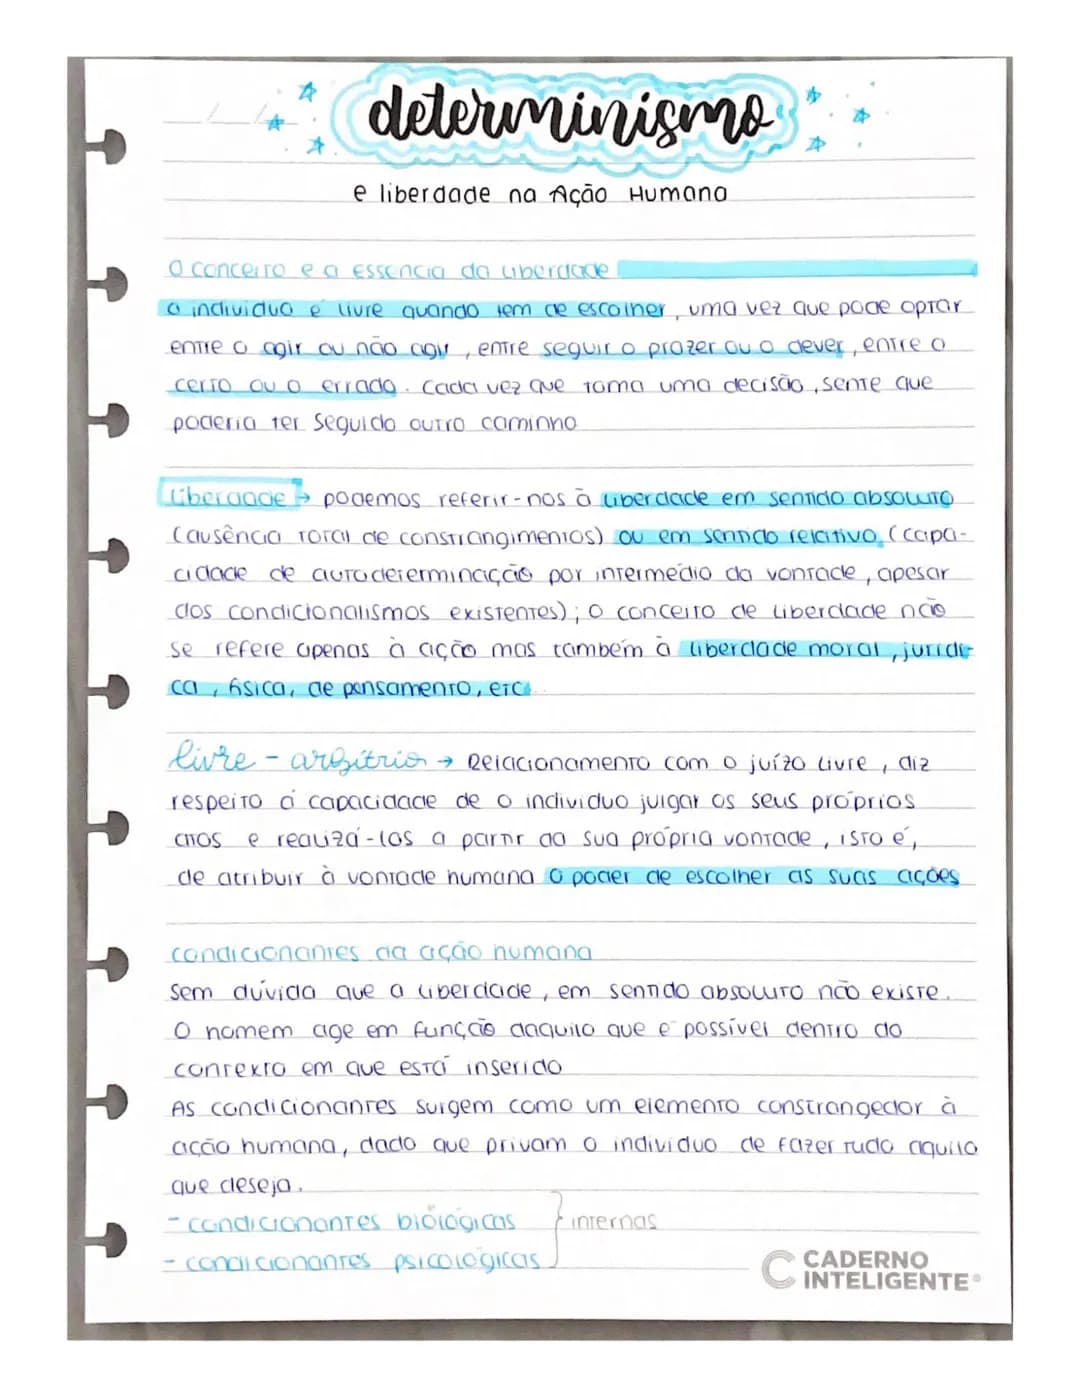 determinismo
e liberdade na Ação Humana
O conceito e a essência da liberdade
O individuo é livre quando tem de escolher, uma vez que pode optar
entre o agir ou não agir, entre seguir o prazer ou o dever, entre o
certo ou o errado. Cada vez que toma uma decisão, sente que
poderia ter seguido outro caminho
liberdade → podemos referir-nos à liberdade em sentido absoluto
(ausência total de constrangimentos) ou em sentido relativo (capa-
cidade de autodeterminação por intermédio da vontade, apesar
dos condicionalismos existentes); o conceito de liberdade não
se refere apenas à ação mas também à liberdade moral, juridi-
ca, física, de pensamento, etc.
livre-arbítrio → Relacionamento com o juízo livre, diz
respeito á capacidade de o individuo julgar os seus próprios
atos e realizá-los a partir da sua própria vontade, isto é,
de atribuir à vontade humana o poder de escolher as suas ações
condicionantes da ação humana
Sem dúvida que a liberdade, em sentido absoluto não existe.
O homem age em função daquilo que é possível dentro do
contexto em que está inserido
As condicionantes surgem como um elemento constrangedor à
ação humana, dado que privam o individuo de fazer tudo aquilo
que deseja.
- condicionantes biológicas } internas
- condicionantes psicológicas
CADERNO
INTELIGENTE®